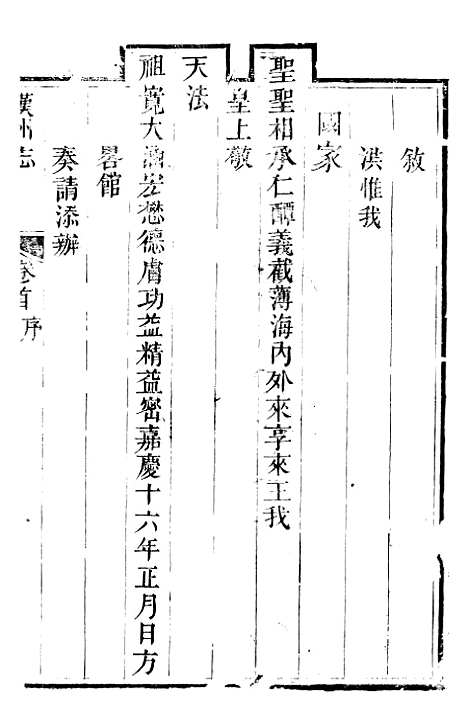 敘
洪惟我
國家
聖聖相承仁醰義截薄海內外來享來王我
皇上敬
天法
祖寬大涵宏懋德膚功益精益密嘉慶十六年正月日方
畧館
奏請添辦
漢州志 卷首 序